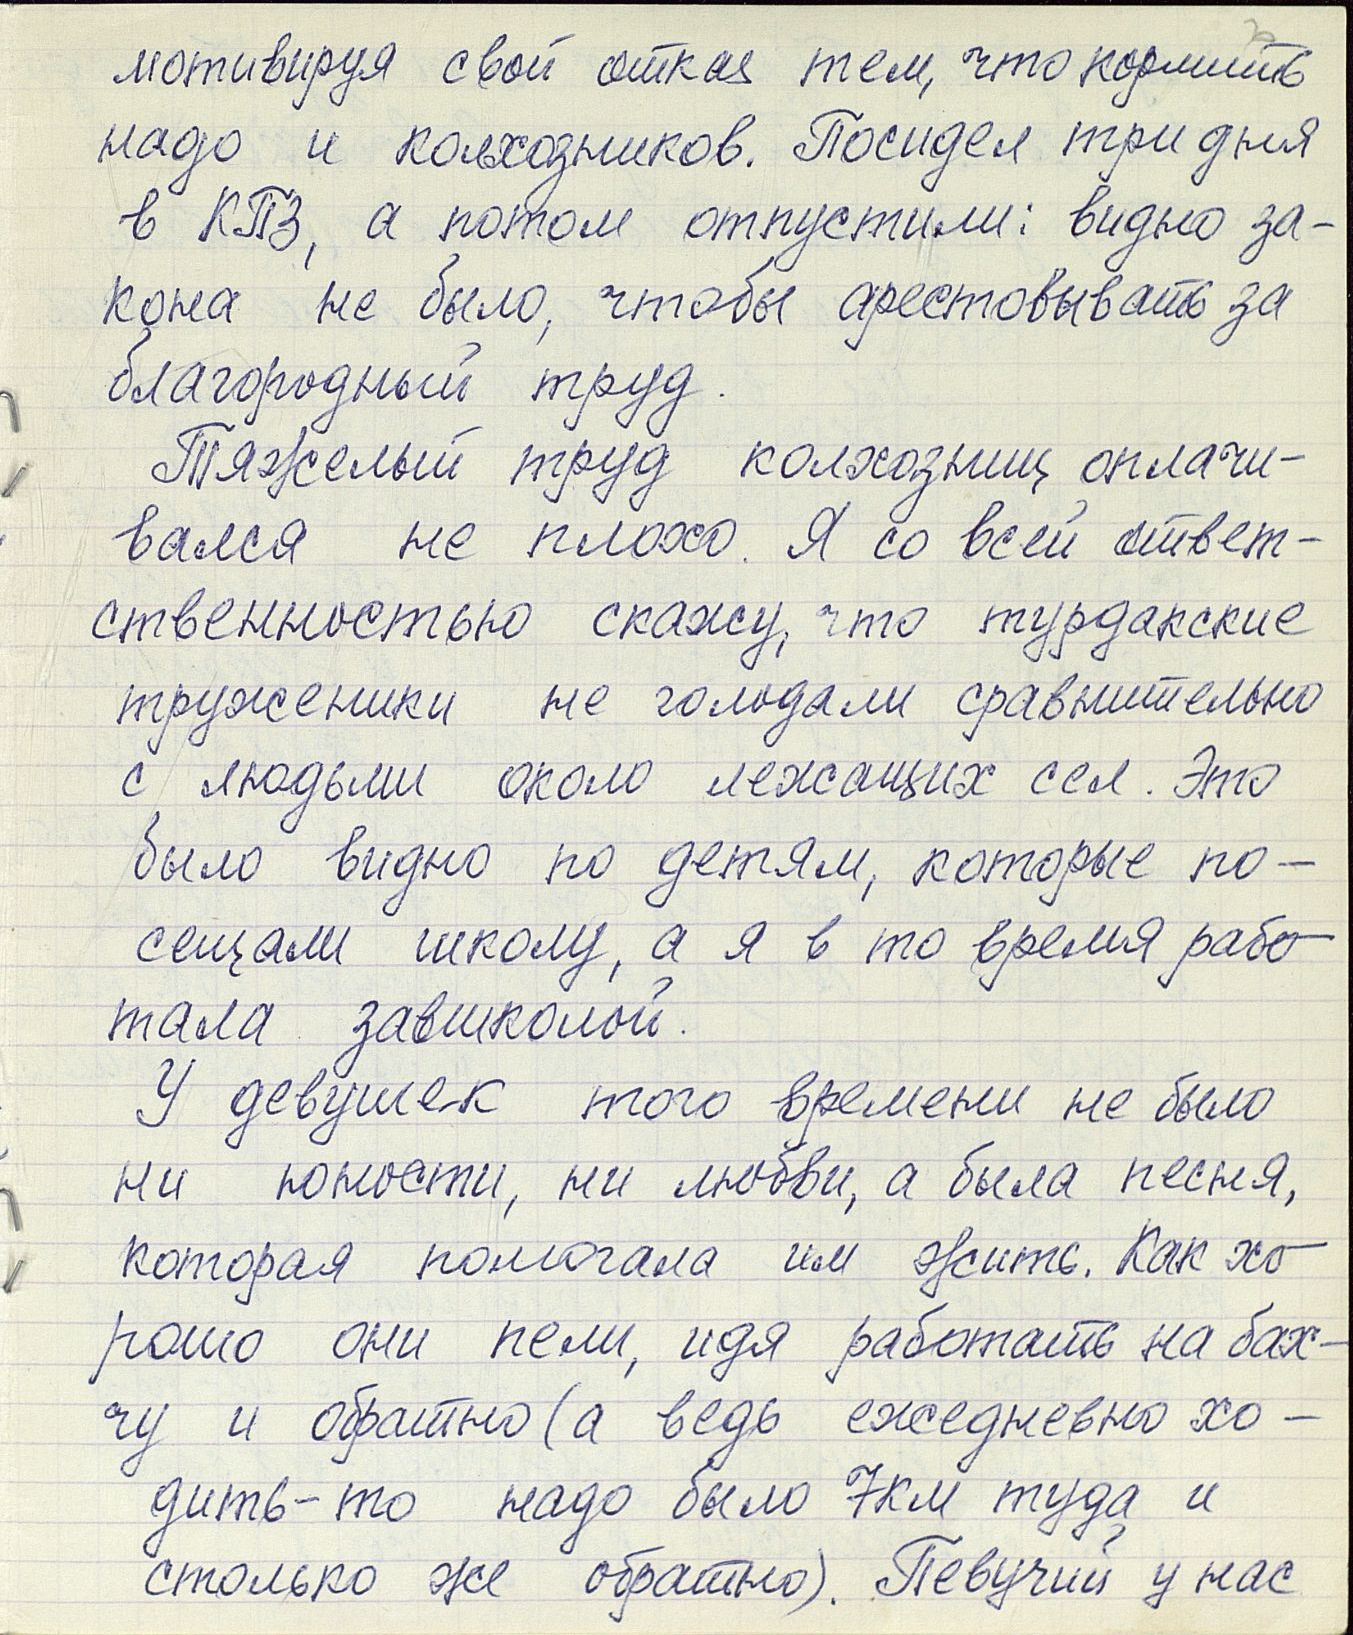 мотивируя свой отказ тем, что кормить
надо и колхозников. Посидел три дня
в КПЗ, а потом отпустили: видно за-
кона не было, чтобы арестовывать за
благородный труд.
Тяжелый труд колхозниц оплачи-
вался не плохо. Я со всей ответ-
ственностью скажу, что турдакские
труженики не голодали сравнительно
с людьми около лежащих сел. Это
было видно по детям, которые по-
сещали школу, а я в то время рабо-
тала завшколой.
У девушек того времени не было
ни юности, ни любви, а была песня,
которая помогала им жить. Как хо-
рошо они пели, идя работать на бах-
чу и обратно (а ведь ежедневно хо-
дить-то надо было 7км туда и
столько же обратно). Певучий у нас